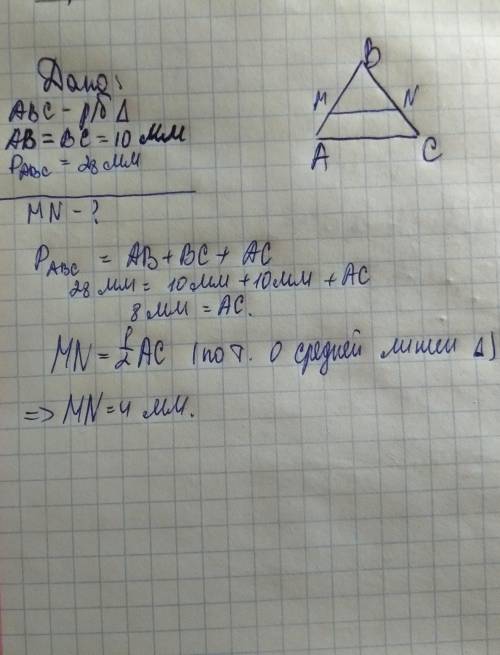 Дано:
ABC - р/б Δ
AB = BC = 10 мм
P ABC = 28 мм
MN - ?
B
M N
A C
P ABC = AB + BC + AC
28 мм = 10 мм + 10 мм + AC
8 мм = AC.
MN = 1/2 AC (по т. о средней линии Δ)
=> MN = 4 мм.